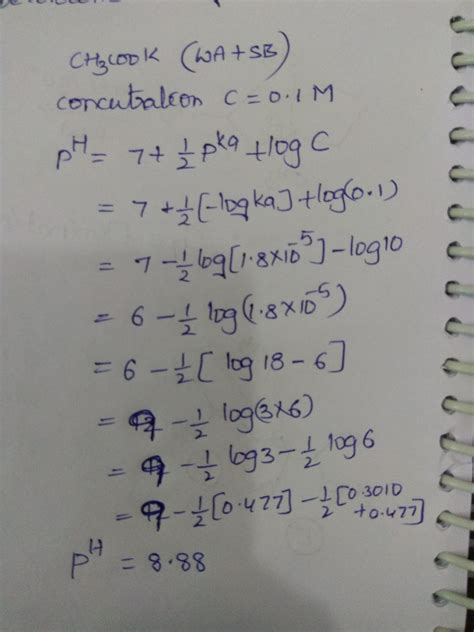 CH3COOK (WA+SB)
concentration C = 0.1 M
pH = 7 + 1/2 pKa + log C
= 7 + 1/2 [-log ka] + log(0.1)
= 7 - 1/2 log[1.8×10^-5] - log10
= 6 - 1/2 log(1.8×10^-5)
= 6 - 1/2 [log 18 - 6]
= 9 - 1/2 log(3×6)
= 9 - 1/2 log3 - 1/2 log6
= 9 - 1/2 [0.477] - 1/2 [0.3010 + 0.477]
pH = 8.88